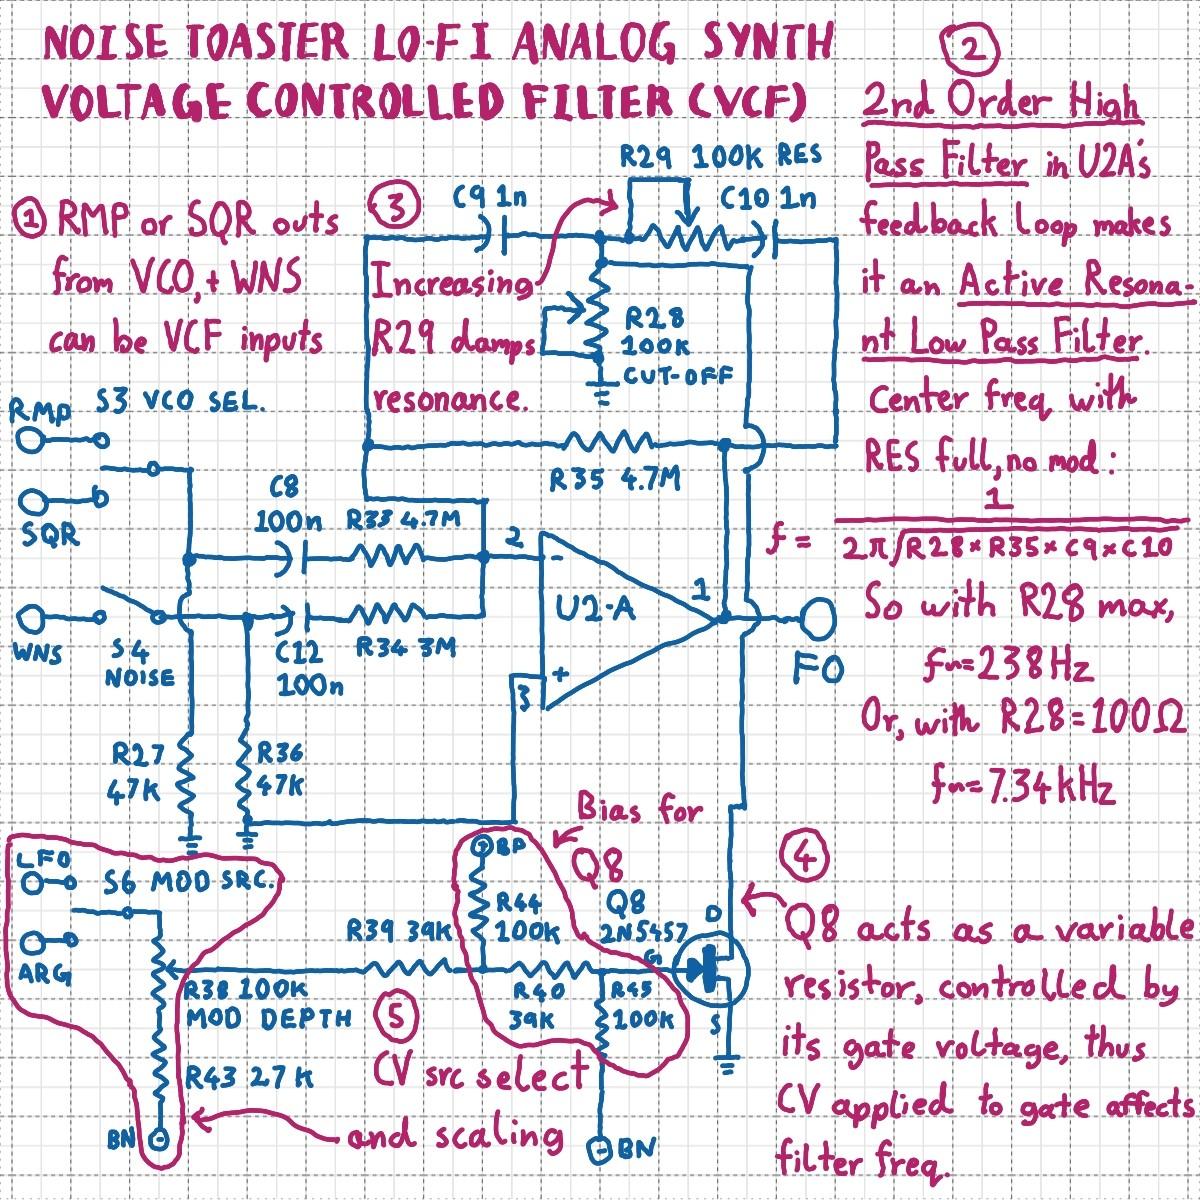 NOISE TOASTER LO-FI ANALOG SYNTH
VOLTAGE CONTROLLED FILTER (VCF)
① RMP or SQR outs
from VCO, + WNS
can be VCF inputs
②
2nd Order High
Pass Filter in U2A's
feedback loop makes
it an Active Resona-
nt Low Pass Filter.
Center freq with
RES full, no mod:
f = 1
2π√R28×R35×C9×C10
So with R28 max,
fn=238Hz
Or, with R28=100Ω
fn=7.34kHz
③
Increasing
R29 damps
resonance.
C9 1n
R29 100K RES
C10 1n
R28
100K
CUT-OFF
RMP
S3 VCO SEL.
SQR
C8
100n
R33 4.7M
R35 4.7M
2
-
U2-A
1
+
3
FO
WNS
S4
NOISE
C12
100n
R34 3M
R27
47K
R36
47K
Bias for
Q8
LFO
S6 MOD SRC.
ARG
R38 100K
MOD DEPTH
R43 27K
BN
R39 39K
BP
R44
100K
R40
39K
R45
100K
BN
Q8
2N5457
G
D
S
④
Q8 acts as a variable
resistor, controlled by
its gate voltage, thus
CV applied to gate affects
filter freq.
⑤
CV src select
and scaling